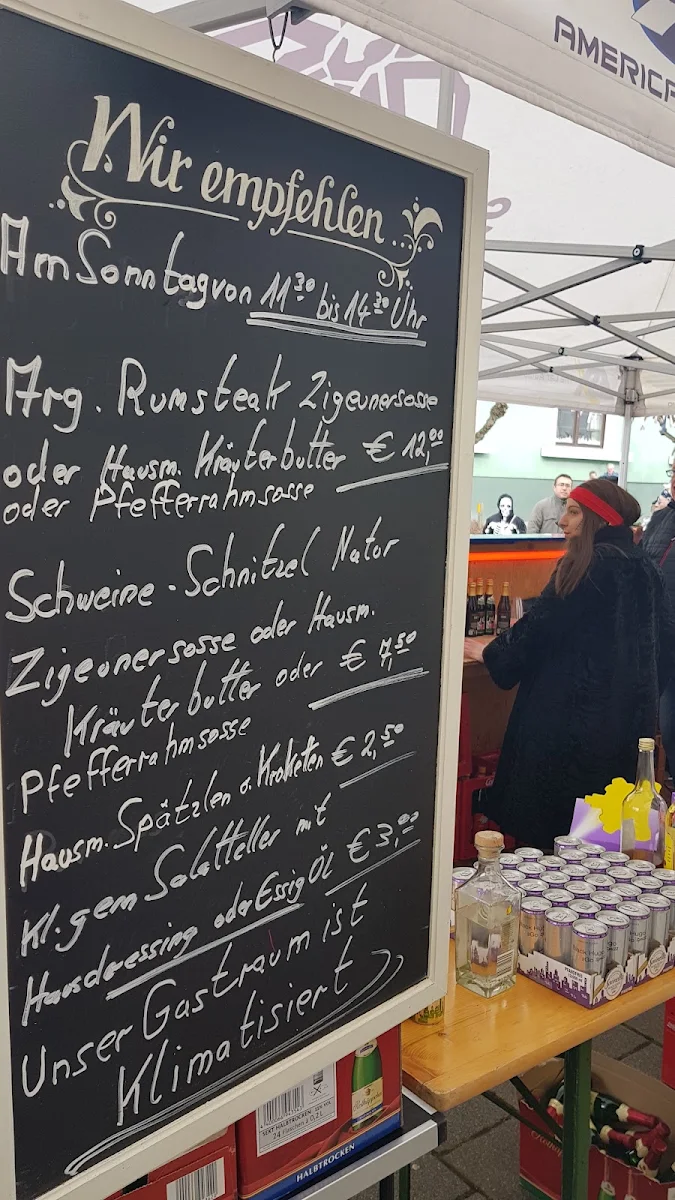 Wir empfehlen
Am Sonntag von 11³⁰ bis 14³⁰ Uhr
Arg. Rumsteak Zigeunersosse
oder Hausm. Kräuterbutter € 12,⁰⁰
oder Pfefferrahmsosse
Schweine-Schnitzel Natur
Zigeunersosse oder Hausm.
Kräuterbutter oder € 7,⁵⁰
Pfefferrahmsosse
Hausm. Spätzlen o. Kroketten € 2,⁵⁰
Kl. gem Salatteller mit
Hausdressing oder Essig Öl € 3,⁰⁰
Unser Gastraum ist
Klimatisiert
AMERICA
SEKT HALBTROCKEN
24 Flaschen à 0,2 L
HALBTROCKEN
Hugo